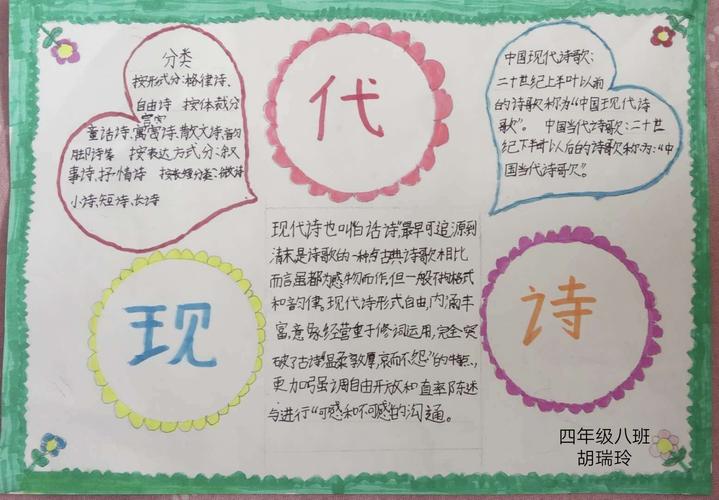 分类
按形式分:格律诗、
自由诗 按体裁分
寓言
童话诗、寓言诗、散文诗、韵
脚诗等 按表达方式分:叙
事诗、抒情诗 按长短分类:微诗
小诗、短诗、长诗
代
中国现代诗歌:
二十世纪上半叶以前
的诗歌称为“中国现代诗
歌”。 中国当代诗歌:二十世
纪下半叶以后的诗歌称为:“中
国当代诗歌”。
现
现代诗也叫“白话诗”最早可追源到
清末是诗歌的一种与古典诗歌相比
而言虽都为感物而作,但一般不拘格式
和韵律。现代诗形式自由,内涵丰
富,意象经营重于修词运用,完全突
破了古诗“温柔敦厚,哀而不怨”的特点,
更加吗强调自由开放和直率陈述
与进行“可感和不可感”的沟通。
诗
四年级八班
胡瑞玲